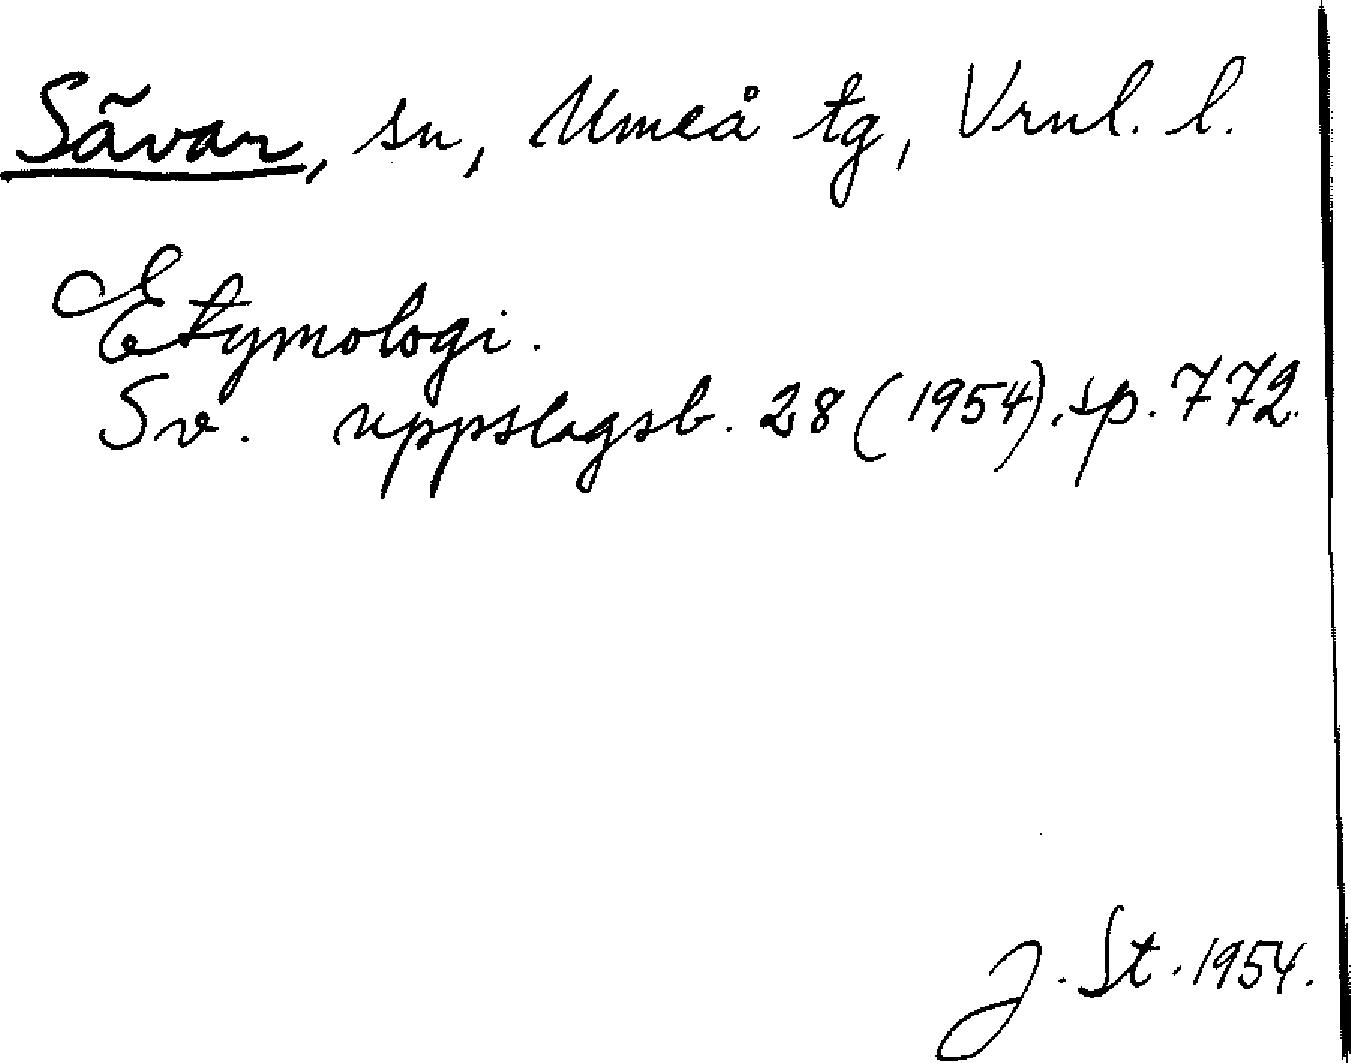 Sävar, sn, Umeå tg, Vrnl. l.
Etymologi.
Sv. uppslagsb. 28 (1954), sp. 772.
J. St. 1954.